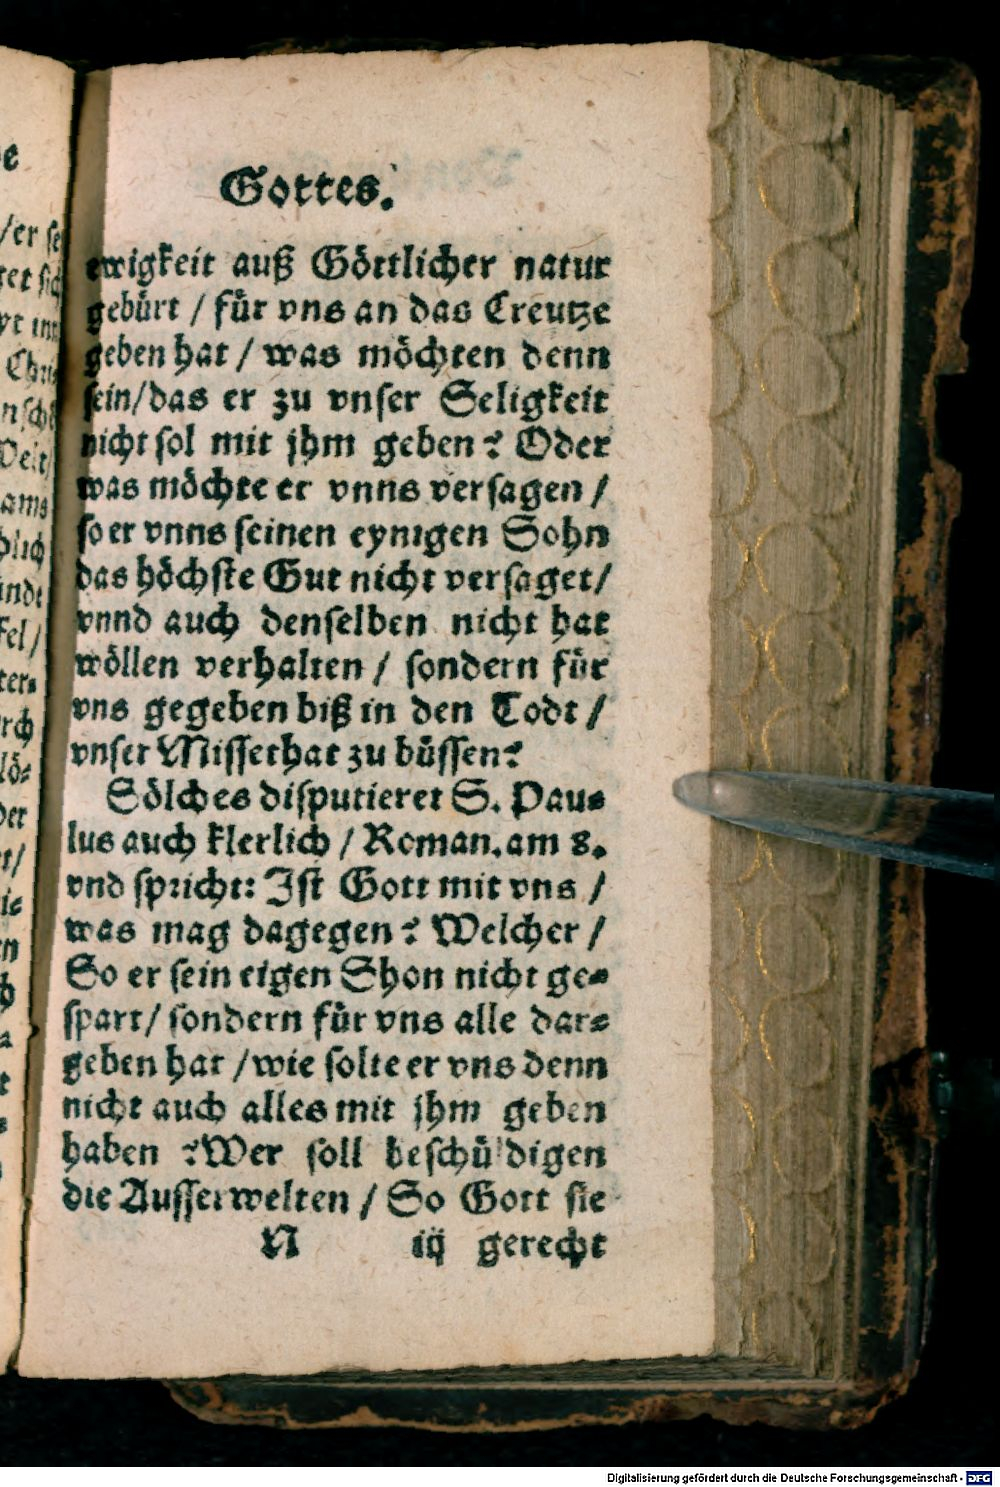 Gottes.
ewigkeit auß Göttlicher natur
gebürt / für vns an das Creutze
geben hat / was möchten denn
sein/das er zu vnser Seligkeit
nicht sol mit jhm geben? Oder
was möchte er vnns versagen /
so er vnns seinen eynigen Sohn
das höchste Gut nicht versaget/
vnnd auch denselben nicht hat
wöllen verhalten / sondern für
vns gegeben biß in den Todt /
vnser Missethat zu büssen?
Sölches disputieret S. Pau-
lus auch klerlich / Roman. am 8.
vnd spricht: Ist Gott mit vns /
was mag dagegen? Welcher /
So er sein eigen Shon nicht ge-
spart/ sondern für vns alle dar-
geben hat /wie solte er vns denn
nicht auch alles mit jhm geben
haben ?Wer soll beschüldigen
die Ausserwelten / So Gott sie
N iij gerecht
Digitalisierung gefördert durch die Deutsche Forschungsgemeinschaft - DFG